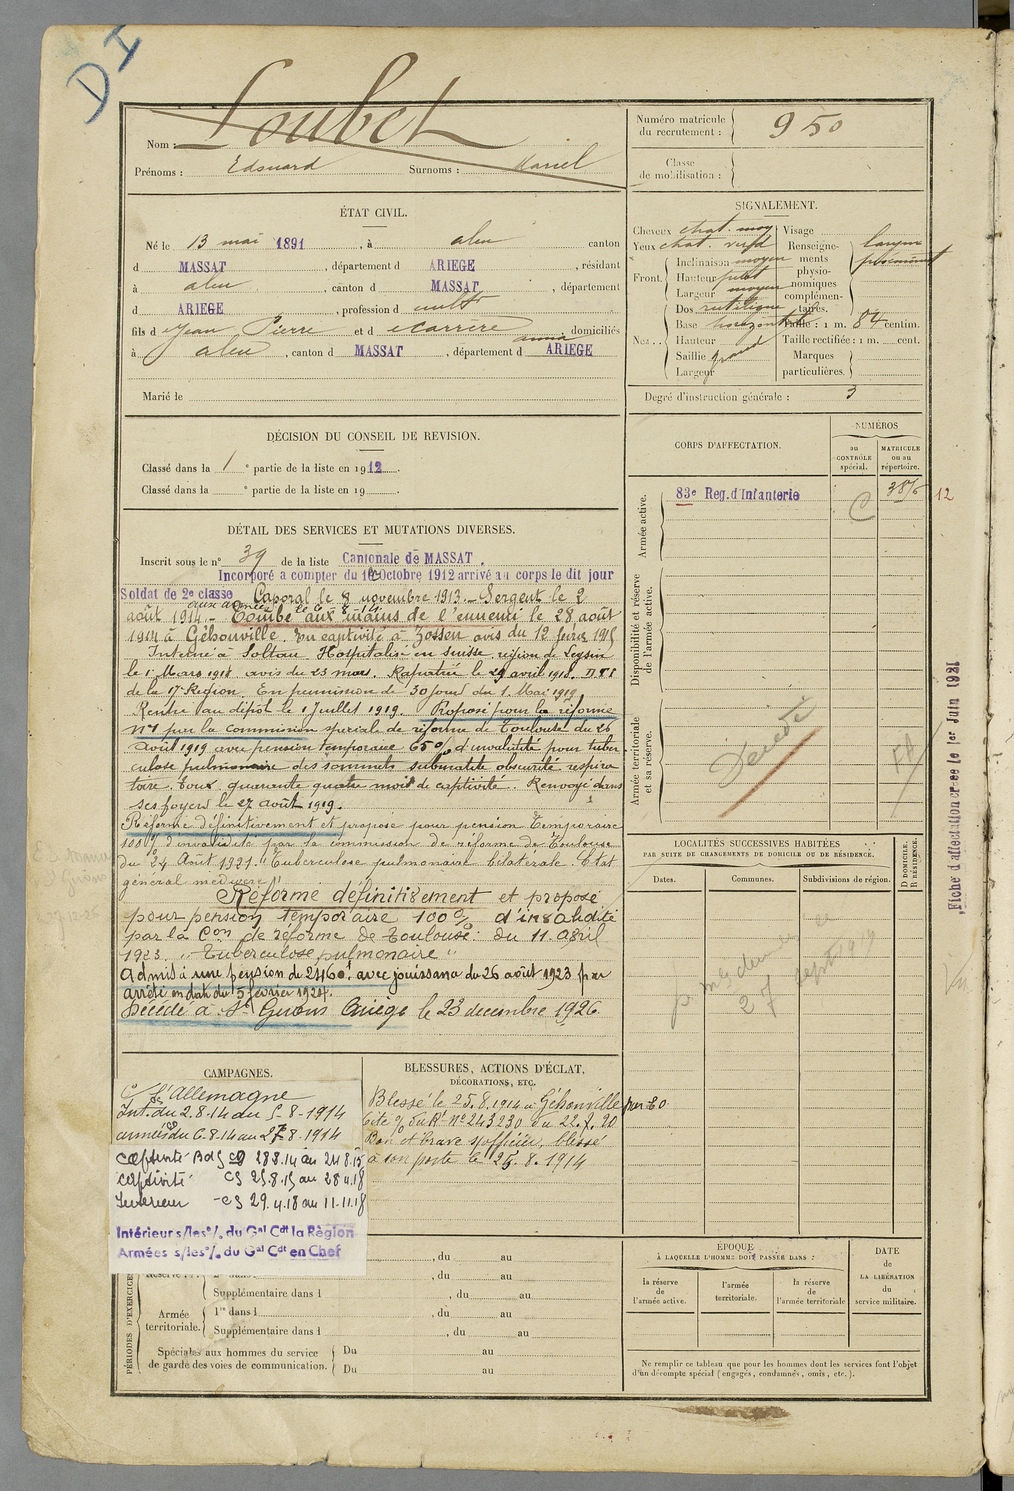 DI
Nom : Loubet
Prénoms : Edouard Surnoms : Marcel
Numéro matricule du recrutement : 950
Classe de mobilisation :
ÉTAT CIVIL.
Né le 13 mai 1891, à aleu canton
d MASSAT, département d ARIEGE, résidant
à aleu, canton d MASSAT, département
d ARIEGE, profession d cultr
fils d Jean Pierre et d Carrère anna domiciliés
à aleu, canton d MASSAT, département d ARIEGE
Marié le
SIGNALEMENT.
Cheveux chat. moy
Yeux chat. verd
Front. Inclinaison moyen
Hauteur petit
Largeur moyen
Nez.. Dos rectiligne
Base horizontale
Hauteur
Saillie grand
Largeur
Visage
Renseignements physionomiques complémentaires.
Taille : 1 m. 84 centim.
Taille rectifiée : 1 m. cent.
Marques particulières.
Degré d'instruction générale : 3
DÉCISION DU CONSEIL DE REVISION.
Classé dans la 1e partie de la liste en 1912.
Classé dans la e partie de la liste en 19
CORPS D'AFFECTATION.
NUMÉROS
au CONTRÔLE spécial.
MATRICULE ou au répertoire.
Armée active.
83e Reg. d'Infanterie C
12
Disponibilité et réserve de l'armée active.
Armée territoriale et sa réserve.
Décédé
DÉTAIL DES SERVICES ET MUTATIONS DIVERSES.
Inscrit sous le n° 39 de la liste Cantonale de MASSAT.
Incorporé a compter du Octobre 1912 arrivé au corps le dit jour
Soldat de 2e classe Caporal le 8 novembre 1913. – Sergent le 2
aux armées le 6 8 14
août 1914. – Tombé aux mains de l'ennemi le 28 août
1914 à Gébonville. En captivité à Zossen avis du 12 févr 1915
Interné à Soltau. Hospitalisé en Suisse région de Leysin
le 1r Mars 1918 avis du 23 mars. Rapatrié le 29 avril 1918.
de la 17e Région. En permission de 30 jours du 1 Mai 1919
Rentré au dépot le 1 Juillet 1919. Proposé pour la réforme
n°1 par la commission spéciale de réforme de Toulouse du 26
août 1919 avec pension temporaire 65% d'invalidité pour tuber
culose pulmonaire des sommets submatité obscurité respira
toire. Toux. quarante quatre mois de captivité. Renvoyé dans
ses foyers le 27 août 1919.
Réformé définitivement et proposé pour pension temporaire
100% d'invalidité par la commission de réforme de Toulouse
du 24 Août 1921. "Tuberculose pulmonaire bilatérale. Etat
général médiocre"
Réformé définitivement et proposé
pour pension temporaire 100% d'invalidité
par la Con de réforme de Toulouse du 11 avril
1923. "Tuberculose pulmonaire"
Admis à une pension de 2460f avec jouissance du 26 août 1923 par
arrêté en date du 5 février 1924.
Décédé à St Girons Ariège le 23 decembre 1926
Fiche d'affectation créée le 1er Juin 1921
LOCALITÉS SUCCESSIVES HABITÉES
PAR SUITE DE CHANGEMENTS DE DOMICILE OU DE RÉSIDENCE.
Dates. Communes. Subdivisions de région. D DOMICILE. R RÉSIDENCE.
27 sept 1919
CAMPAGNES.
Ce l'Allemagne
Int. du 2.8.14 au 5-8-1914
armées du 6.8.14 au 27-8-1914
captivité 28 8.14 au 24 8.15
captivité CS 25.8.15 au 28 4.18
Interieur CS 29.4.18 au 11.11.18
Intérieur s/les o/. du Gal Cdt la Région
Armées s/les o/. du Gal Cdt en Chef
BLESSURES, ACTIONS D'ÉCLAT,
DÉCORATIONS, ETC.
Blessé le 25.8.1914 à Gébonville
Cité o/ du Rt n° 243230 du 22.7.20
Bon et brave s/officier, blessé
à son poste le 25.8.1914
PÉRIODES D'EXERCICES
, du au
Réserve , du au
Supplémentaire dans l , du au
Armée territoriale. 1re dans l , du au
Supplémentaire dans l , du au
Spéciales aux hommes du service de garde des voies de communication. Du au
Du au
ÉPOQUE
À LAQUELLE L'HOMME DOIT PASSER DANS :
la réserve de l'armée active.
l'armée territoriale.
la réserve de l'armée territoriale
DATE de LA LIBÉRATION du service militaire.
Ne remplir ce tableau que pour les hommes dont les services font l'objet
d'un décompte spécial (engagés, condamnés, omis, etc.).